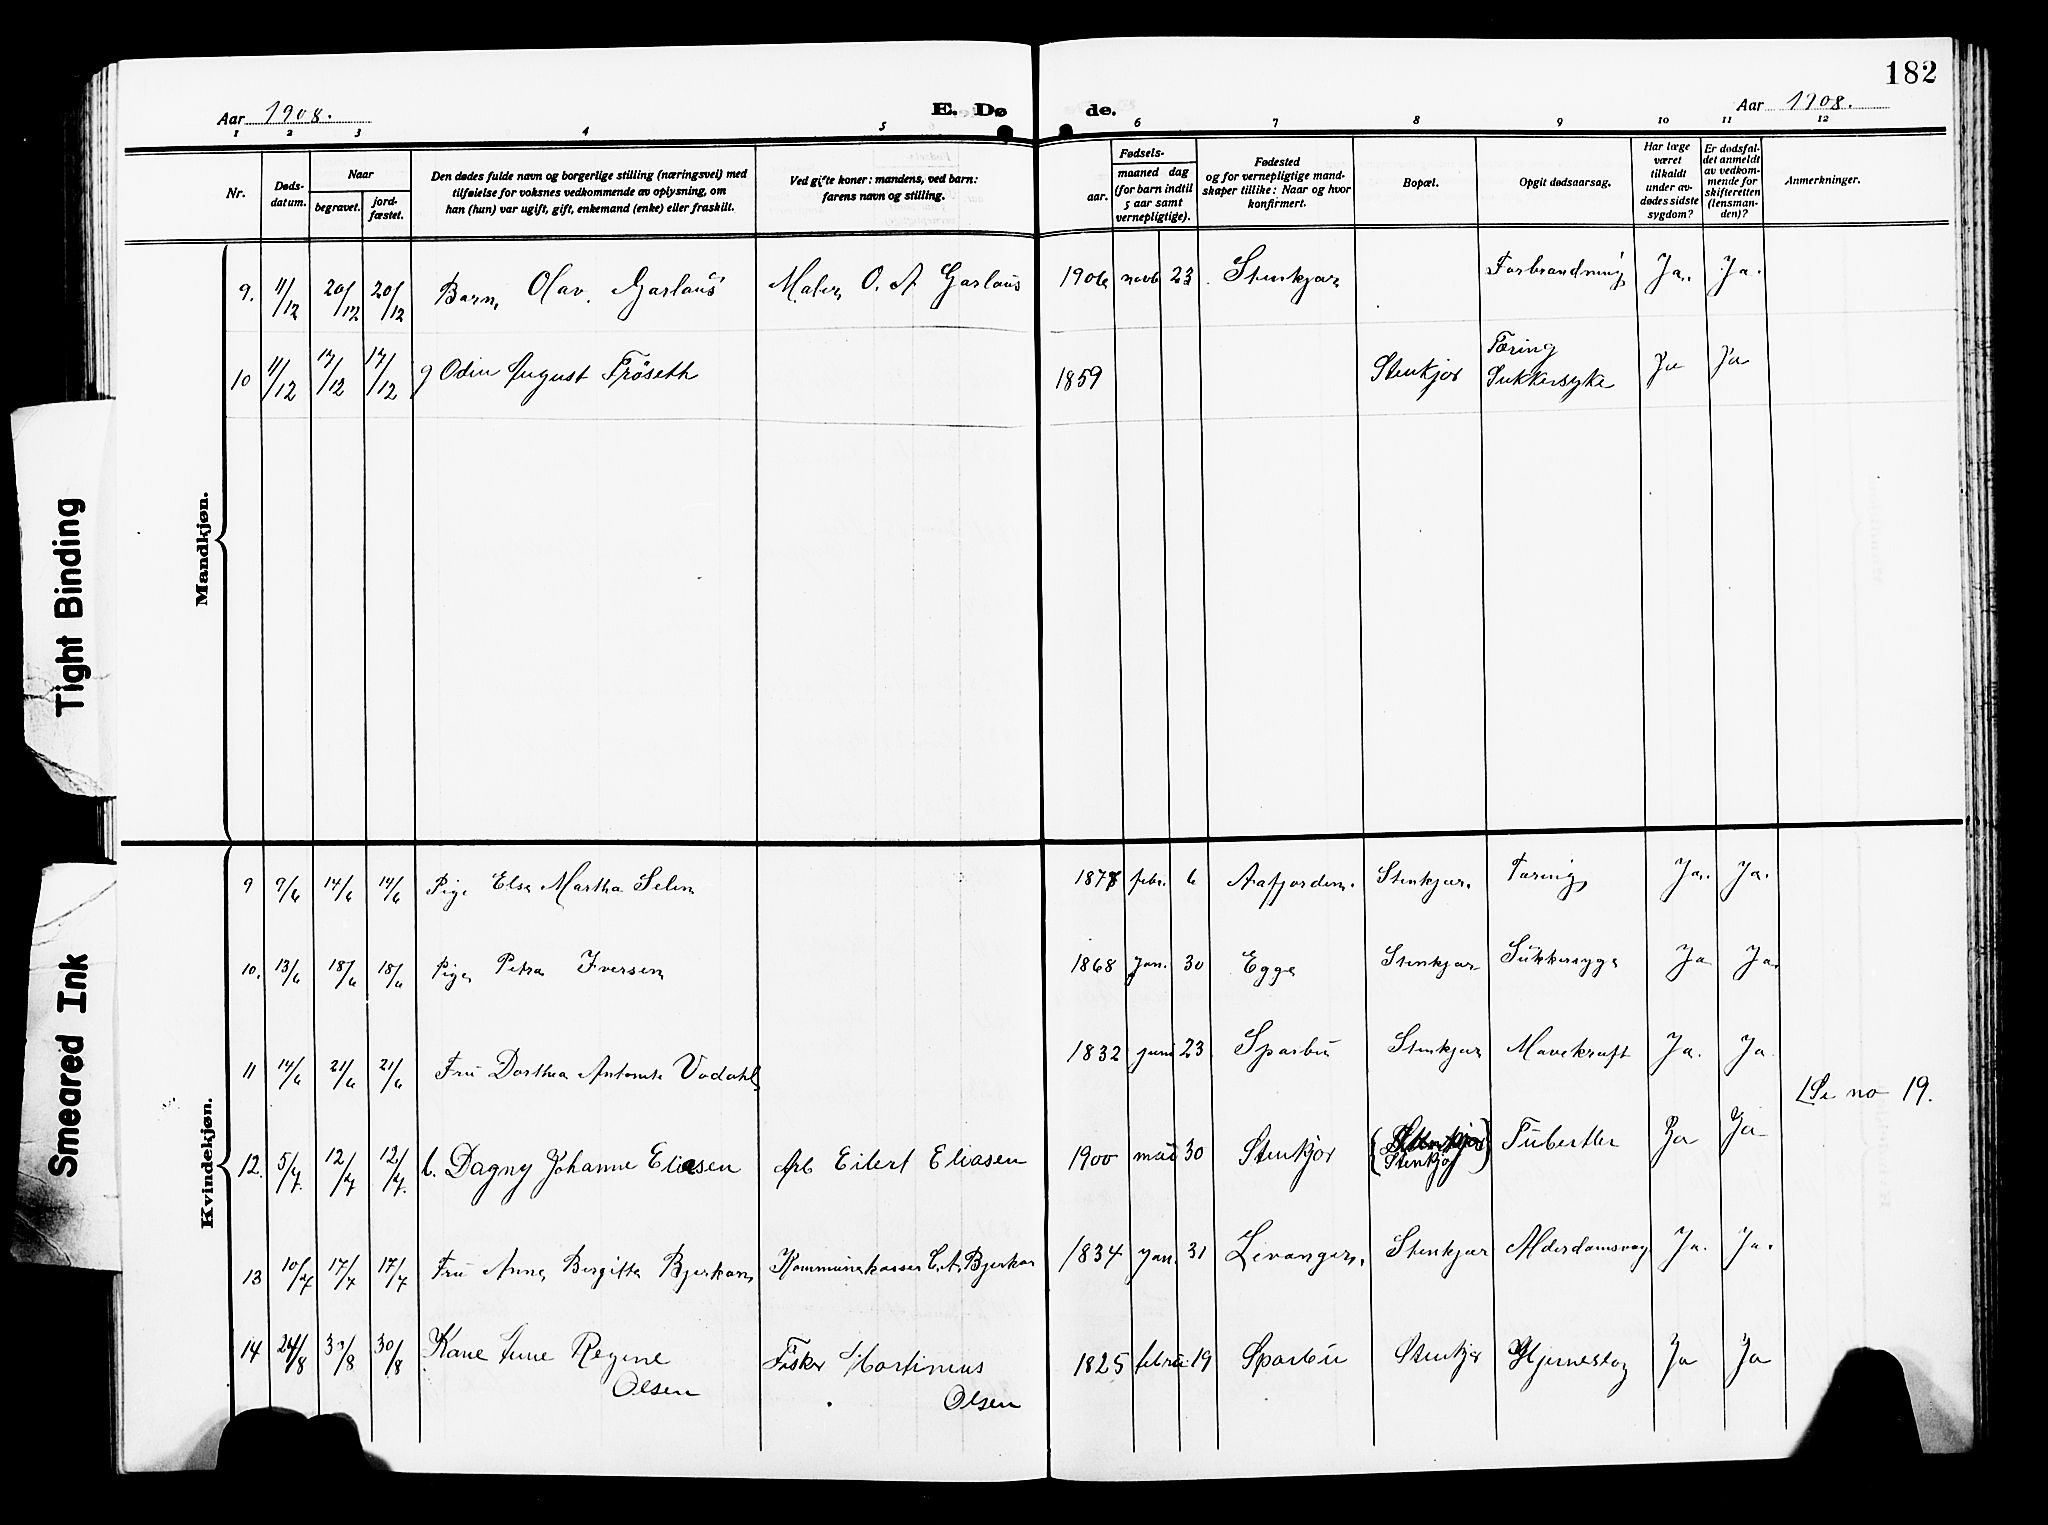 182
Aar 1908. E. Dø de. Aar 1908.
1 2 3 4 5 6 7 8 9 10 11 12
Nr.
Døds-
datum.
Naar
begravet.
jord-
fæstet.
Den dødes fulde navn og borgerlige stilling (næringsvei) med
tilføielse for voksnes vedkommende av oplysning, om
han (hun) var ugift, gift, enkemand (enke) eller fraskilt.
Ved gifte koner: mandens, ved barn:
farens navn og stilling.
Fødsels-
aar.
maaned dag
(for barn indtil
5 aar samt
vernepligtige).
Fødested
og for vernepligtige mand-
skaper tillike: Naar og hvor
konfirmert.
Bopæl.
Opgit dødsaarsag.
Har læge
været
tilkaldt
under av-
dødes sidste
sygdom?
Er dødsfal-
det anmeldt
av vedkom-
mende for
skifteretten
(lensman-
den)?
Anmerkninger.
Mandkjøn.
9. 11/12 20/12 20/12 Barn Olav Garlaus Maler O. A Garlaus 1906 novb 23 Stenkjær Forbrændning Ja. Ja.
10 11/12 17/12 17/12 g Odin August Frøseth 1859 Stenkjær Tæring Sukkersyke Ja Ja
Kvindekjøn.
9 9/6 14/6 14/6 Pige Else Martha Selin 1878 febr. 6 Aafjorden. Stenkjær Tæring Ja. Ja.
10. 13/6 18/6 18/6 Pige Petra Iversen 1868 Jan. 30 Egge Stenkjær Sukkersyge Ja Ja.
11 14/6 21/6 21/6 Fru Dorthea Antonette Vodahl 1832 juni 23 Sparbu Stenkjær Mavekræft Ja. Ja
Se no 19.
12. 5/7. 12/7 12/7. b. Dagny Johanne Eliasen Arb Eilert Eliasen 1900 mai 30 Stenkjør (Stenkjør) Tuberkler Ja Ja
13 10/7 17/7 17/7 Fru Anne Birgitte Bjerkan Kommunekasser C. A. Bjerkan 1834 Jan. 31 Levanger. Stenkjær Alderdomssvag Ja. Ja.
14 24/8 30/8 30/8 Kone Anne Regine Fisker Martineus 1825 febru. 19 Sparbu Stenkjær Hjerneslag Ja Ja
Olsen Olsen
Tight Binding
Smeared Ink